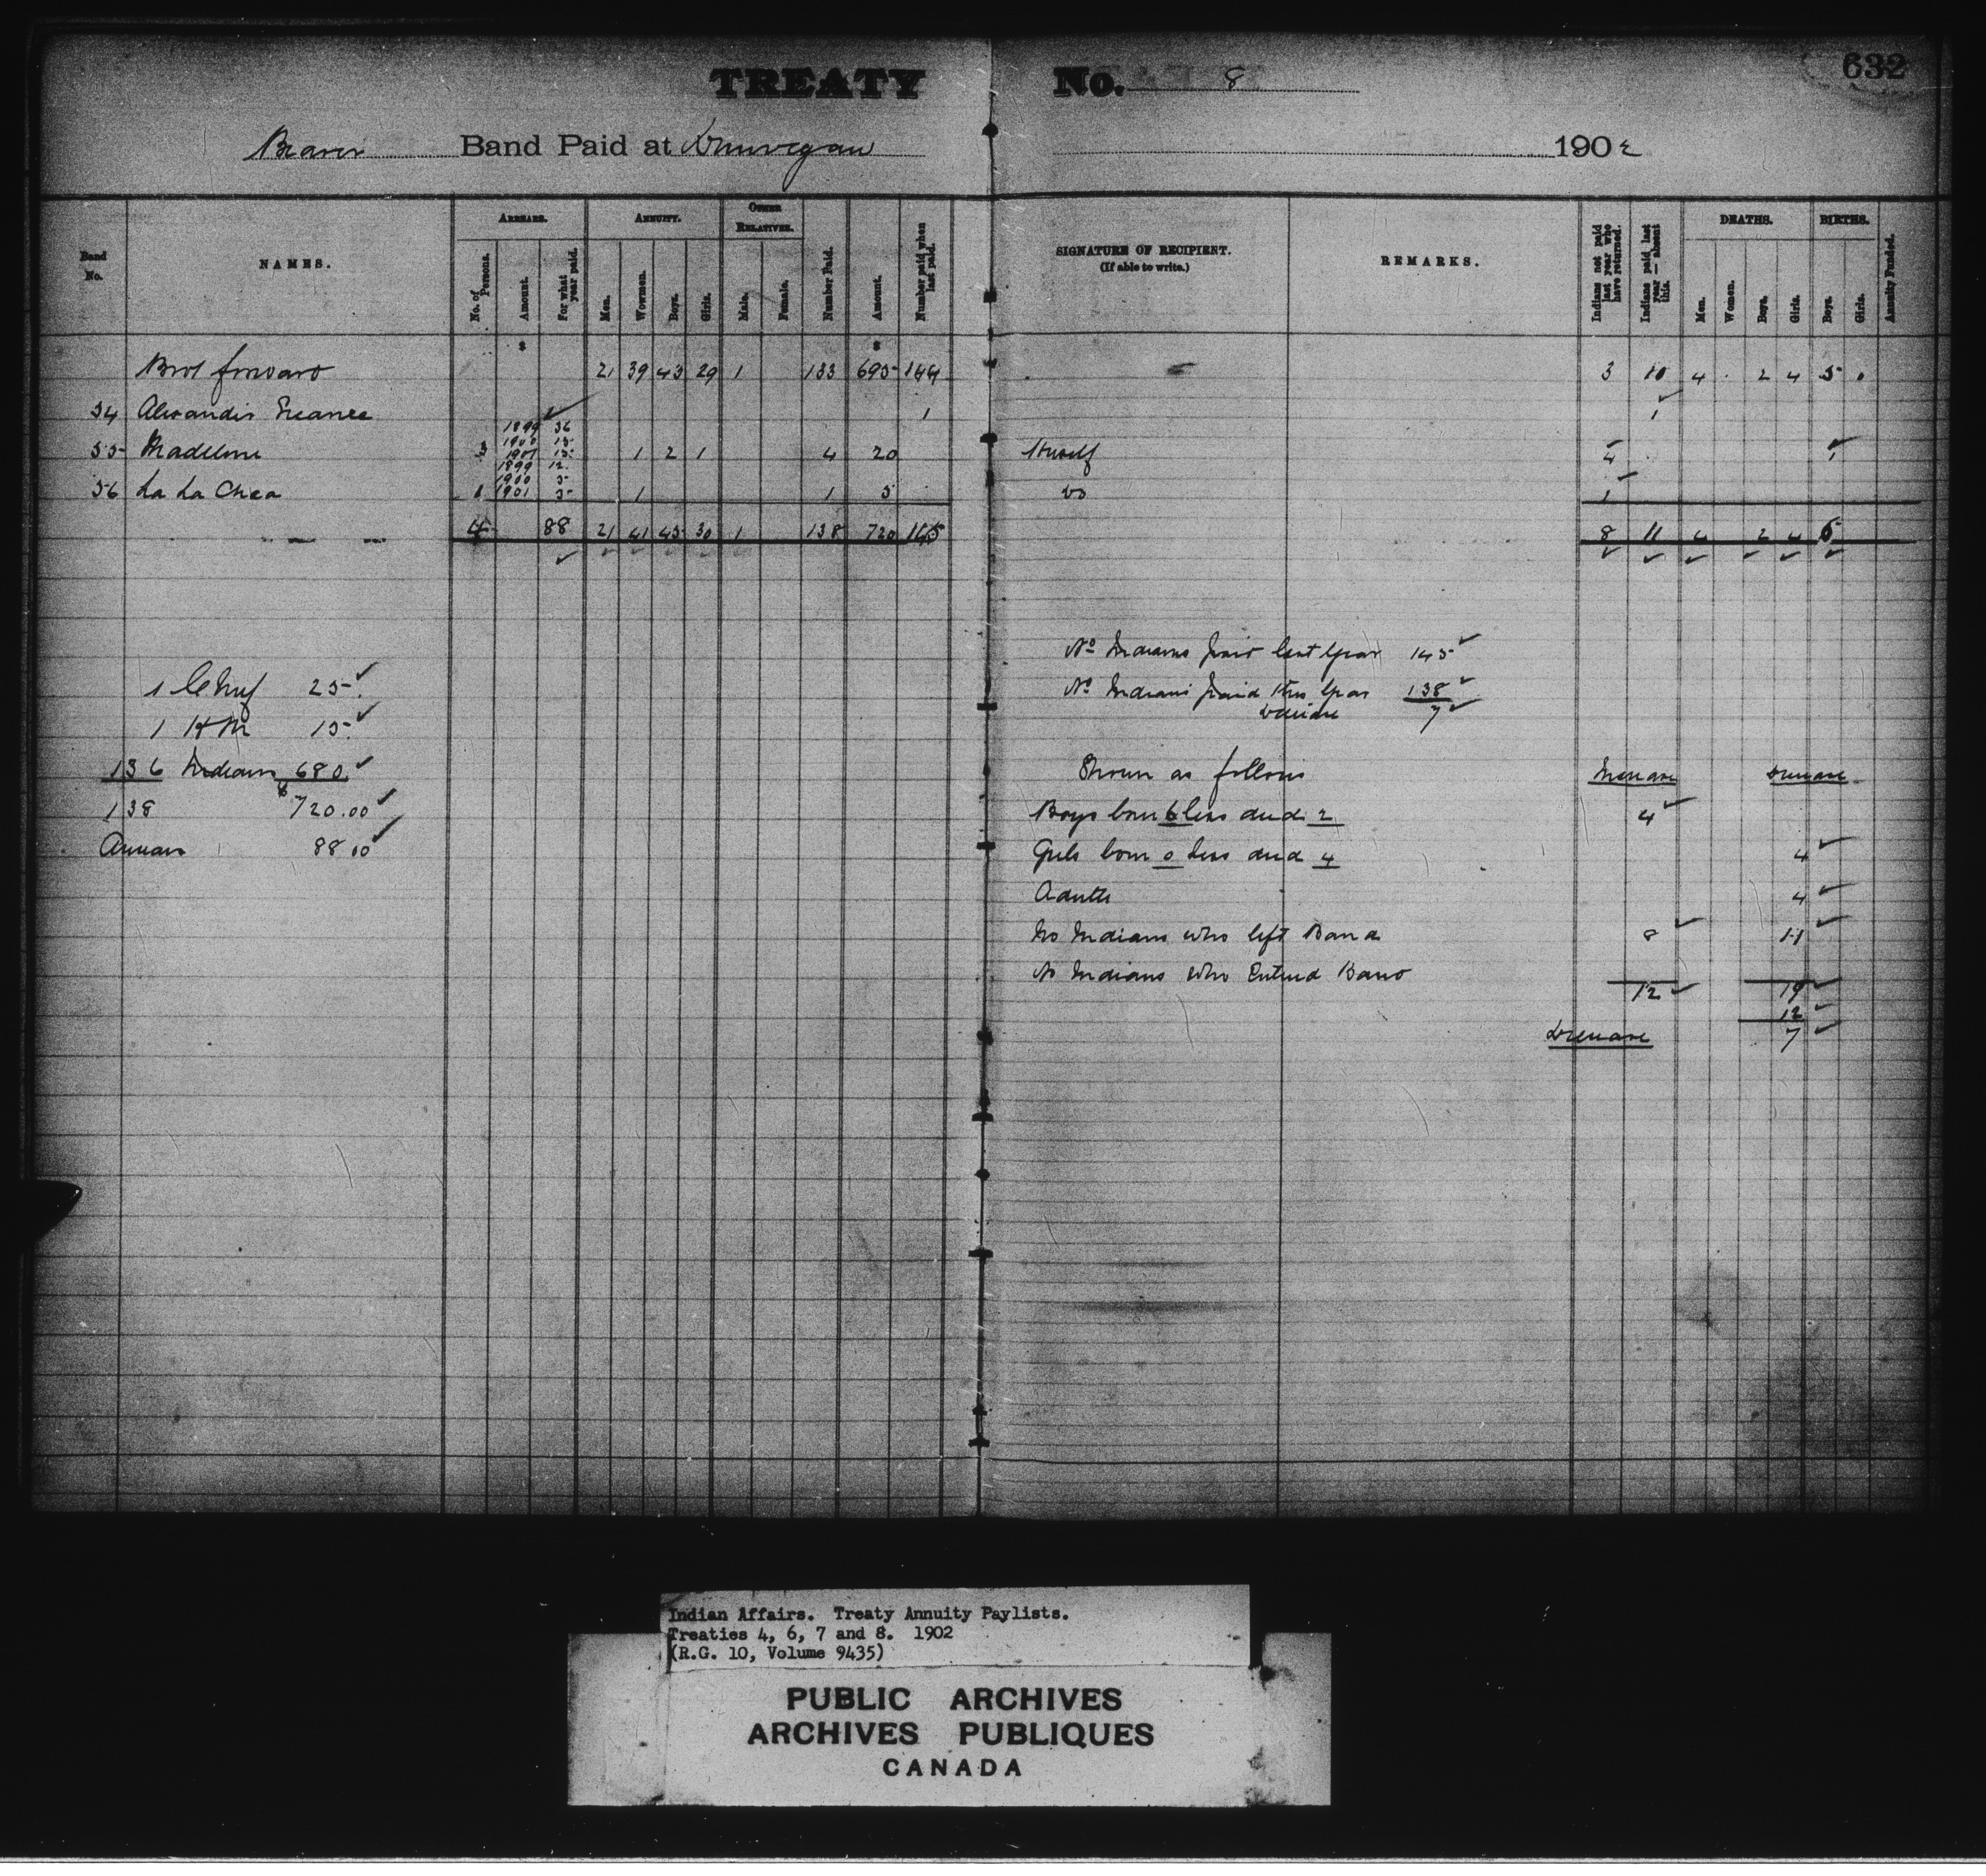 TREATY No. 8
632
Beaver Band Paid at Dunvegan 1902
Band No. NAMES. ARREARS. No. of Persons. Amount. For what year paid. ANNUITY. Men. Women. Boys. Girls. OTHER RELATIVES. Male. Female. Number Paid. Amount. Number paid when last paid. SIGNATURE OF RECIPIENT. (If able to write.) REMARKS. Indians not paid last year who have returned. Indians paid last year — absent this. DEATHS. Men. Women. Boys. Girls. BIRTHS. Boys. Girls. Annuity Funded.
$ $
Brot forward 21 39 43 29 1 133 695 144 3 10 4 2 4 5
54 Alexandis 1 1
1899 36
1900 15
55 Madeline 3 1901 15 1 2 1 4 20 4 1
1899 12
1900 5
56 La La Chea 1 1901 5 1 1 5 do 1
4 88 21 41 45 30 1 138 720 145 8 11 4 2 4 6
No Indians paid last year 145
No Indians paid this year 138
Decrease 7
1 Chief 25
1 HM 15
136 Indians 680
138 $720.00
Arrears 88 00
Shown as follows Increase Decrease
Boys born 6 less died 2 4
Girls born 0 less died 4 4
Adults 4
No Indians who left Band 8 11
No Indians who Entered Band
12 19
12
Decrease 7
Indian Affairs. Treaty Annuity Paylists.
Treaties 4, 6, 7 and 8. 1902
(R.G. 10, Volume 9435)
PUBLIC ARCHIVES
ARCHIVES PUBLIQUES
CANADA